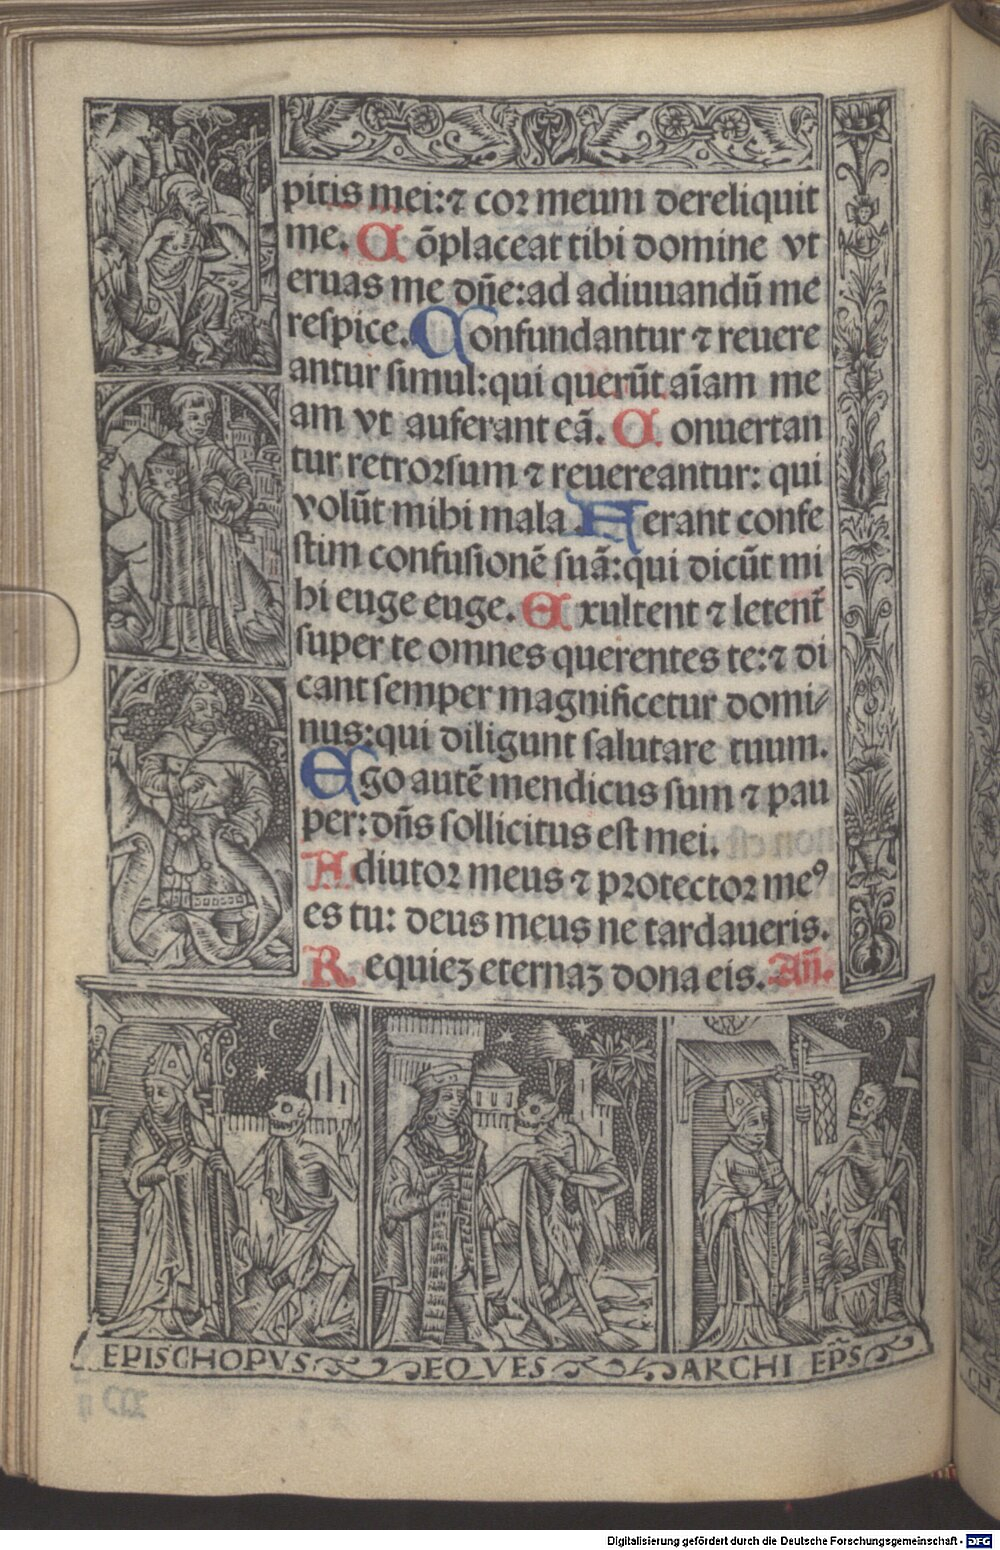 pitis mei:⁊ coꝛ meum dereliquit
me. Cōplaceat tibi domine vt
eruas me dñe:ad adiuuandū me
respice. Confundantur ⁊ reuere
antur simul:qui querūt aīam me
am vt auferant eā. Conuertan
tur retroꝛsum ⁊ reuereantur: qui
volūt mihi mala. Ferant confe
stim confusionē suā:qui dicūt mi
hi euge euge. Exultent ⁊ letent᷑
super te omnes querentes te:⁊ di
cant semper magnificetur domi⸗
nus:qui diligunt salutare tuum.
Ego autē mendicus sum ⁊ pau
per:dñs sollicitus est mei.
Adiutoꝛ meus ⁊ pꝛotectoꝛ meꝰ
es tu: deus meus ne tardaueris.
Requieꝫ eternaꝫ dona eis. Añ.
EPISCHOPVS EQVES ARCHI EP̃S
Digitalisierung gefördert durch die Deutsche Forschungsgemeinschaft - DFG